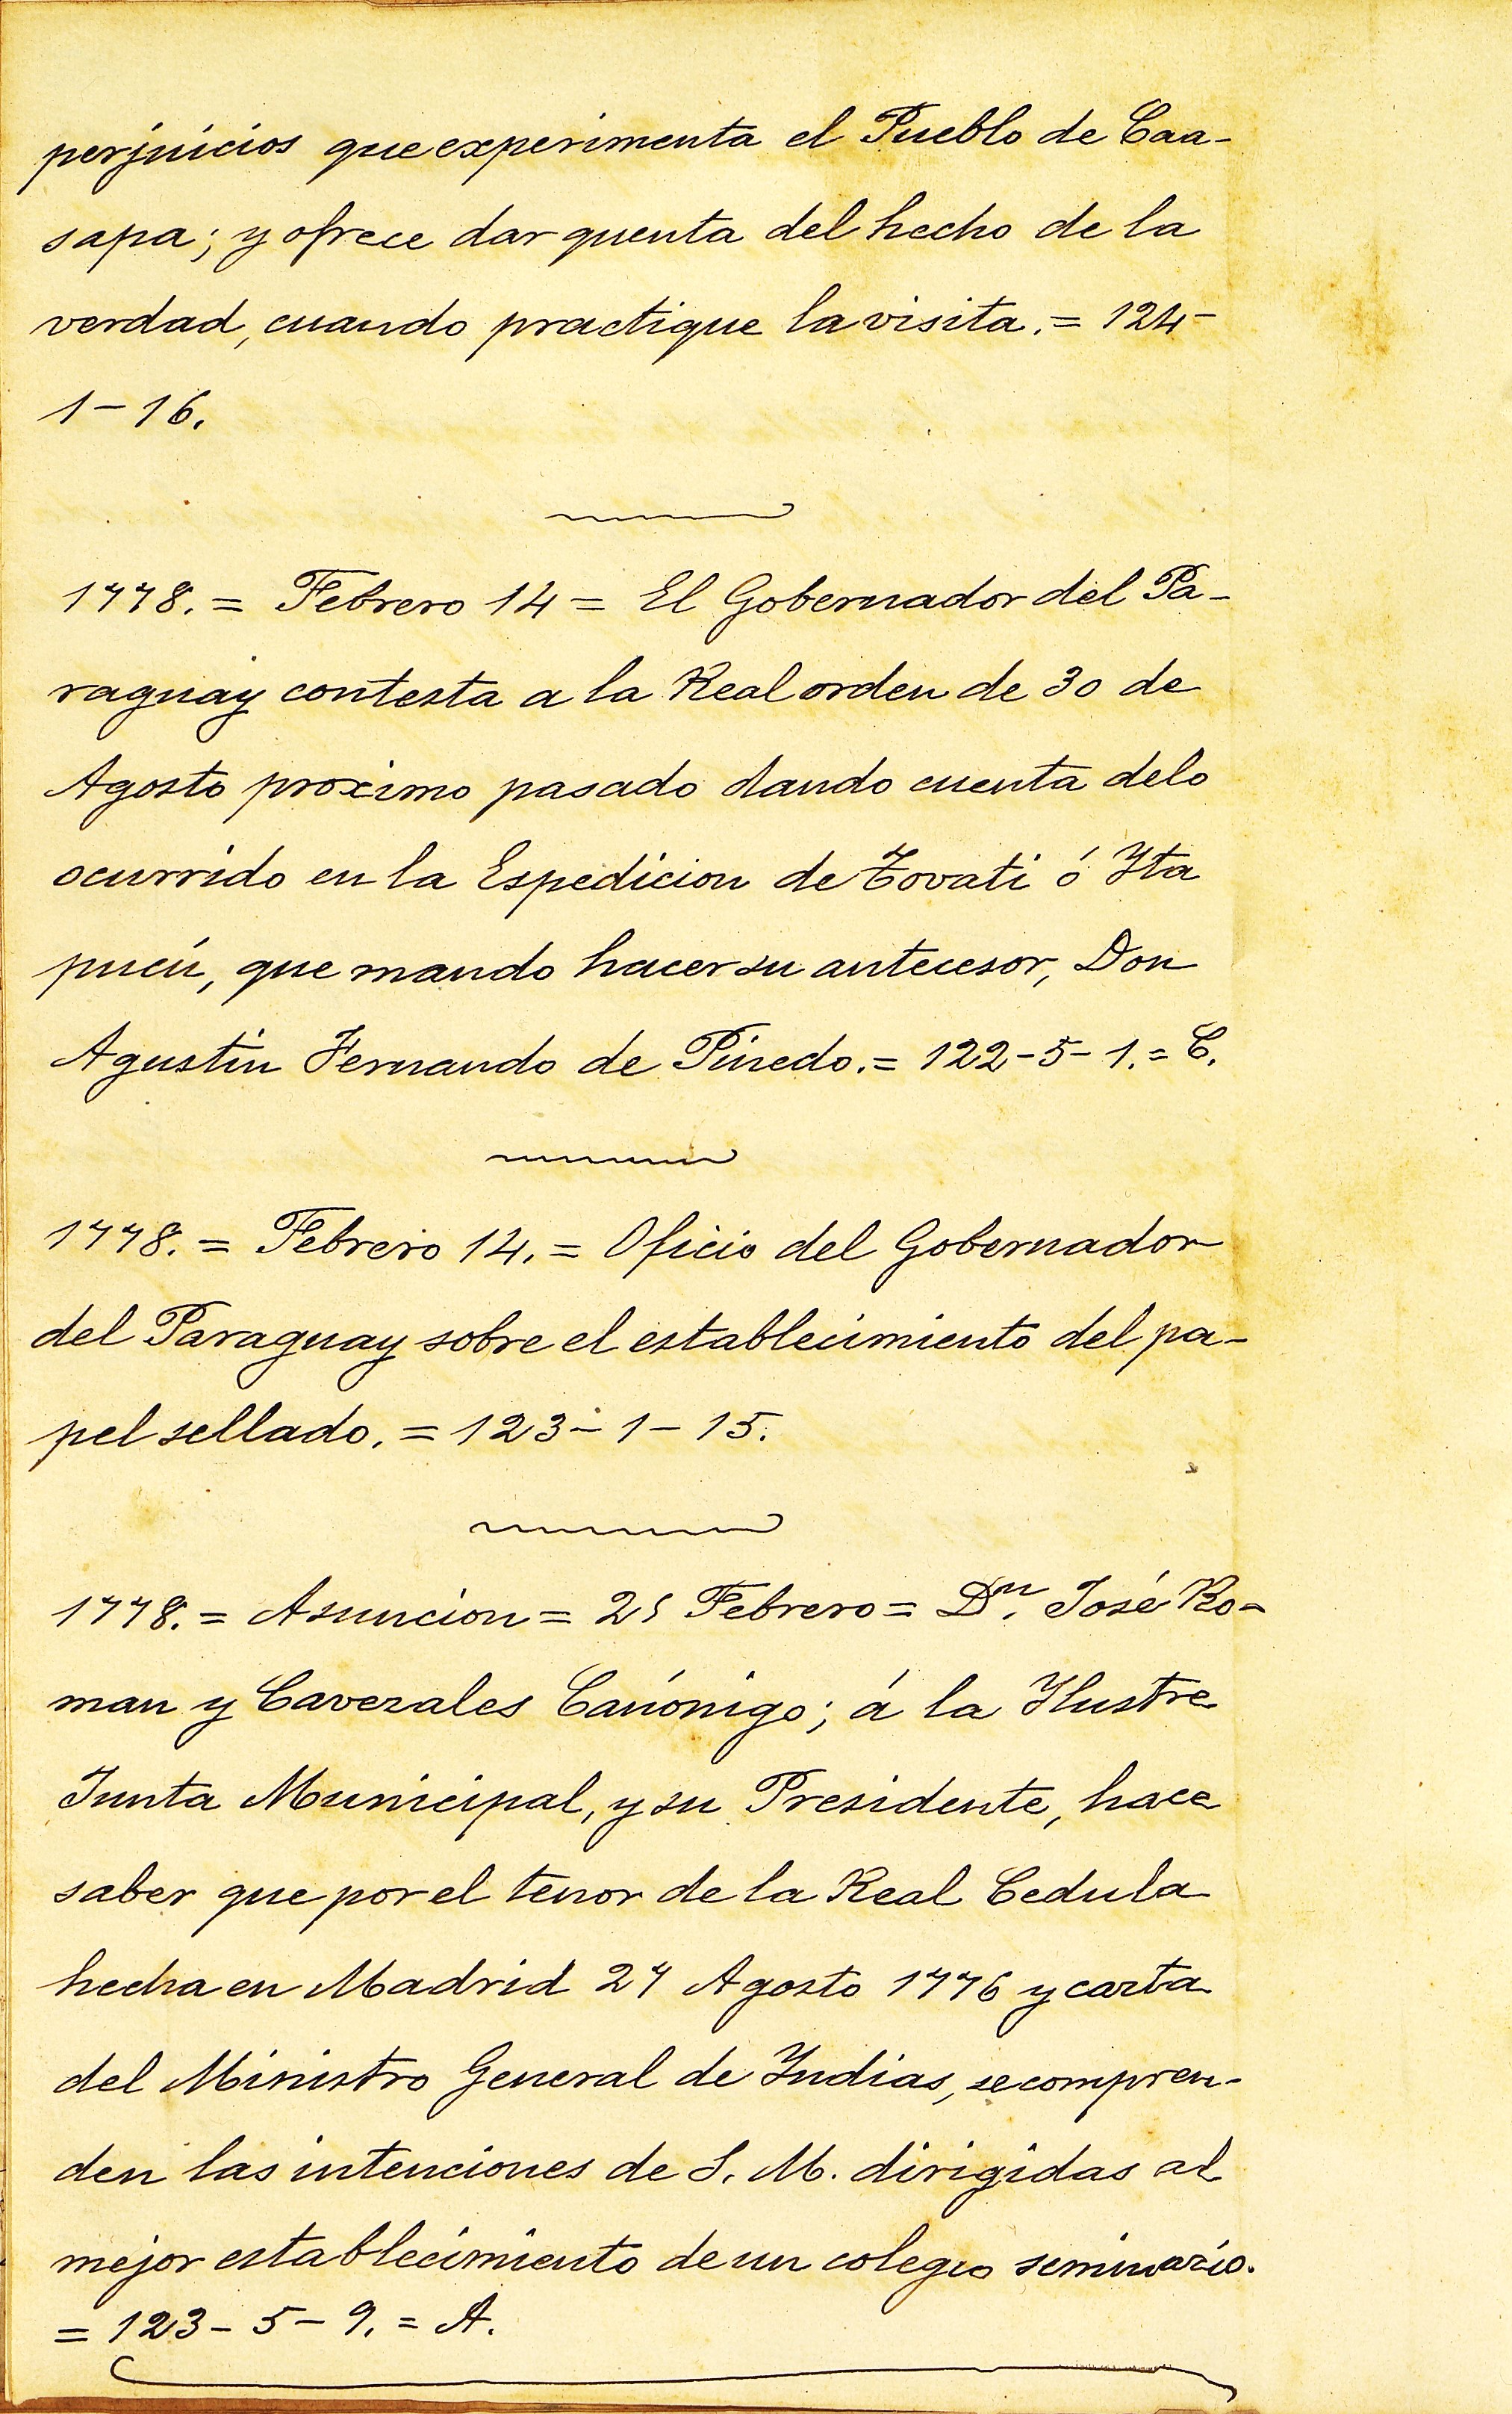 perjuicios que experimenta el Pueblo de Caa-
sapa; y ofrece dar quenta del hecho de la
verdad, cuando practique la visita. = 124-
1-16.
1778. = Febrero 14 = El Gobernador del Pa-
raguay contesta a la Real orden de 30 de
Agosto proximo pasado dando cuenta delo
ocurrido en la Espedicion de Tovati ó Yta
pucú, que mando hacer su antecesor, Don
Agustin Fernando de Pinedo. = 122-5-1. = C.
1778. = Febrero 14. = Oficio del Gobernador
del Paraguay sobre el establecimiento del pa-
pel sellado. = 123-1-15.
1778. = Asuncion = 25 Febrero = Dn. José Ro-
man y Cavezales Canónigo; á la Ilustre
Junta Municipal, y su Presidente, hace
saber que por el tenor de la Real Cedula
hecha en Madrid 27 Agosto 1776 y carta
del Ministro General de Indias, se compren-
den las intenciones de S. M. dirigidas al
mejor establecimiento de un colegio seminario.
= 123-5-9. = A.